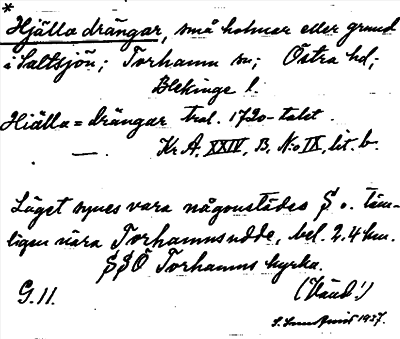 *
Hjälla drängar, små holmar eller grund
i Saltsjön; Torhamn sn; Östra hd;
Blekinge l.
Hiälla=drängar trol. 1720-talet.
— Kr.A. XXIV, B. N:o IX, lit. b.
Läget synes vara någonstädes S o. täm-
ligen nära Torhamnsudde, bel. 2.4 km.
SSÖ Torhamns kyrka.
G. 11. (Vänd!)
1937.